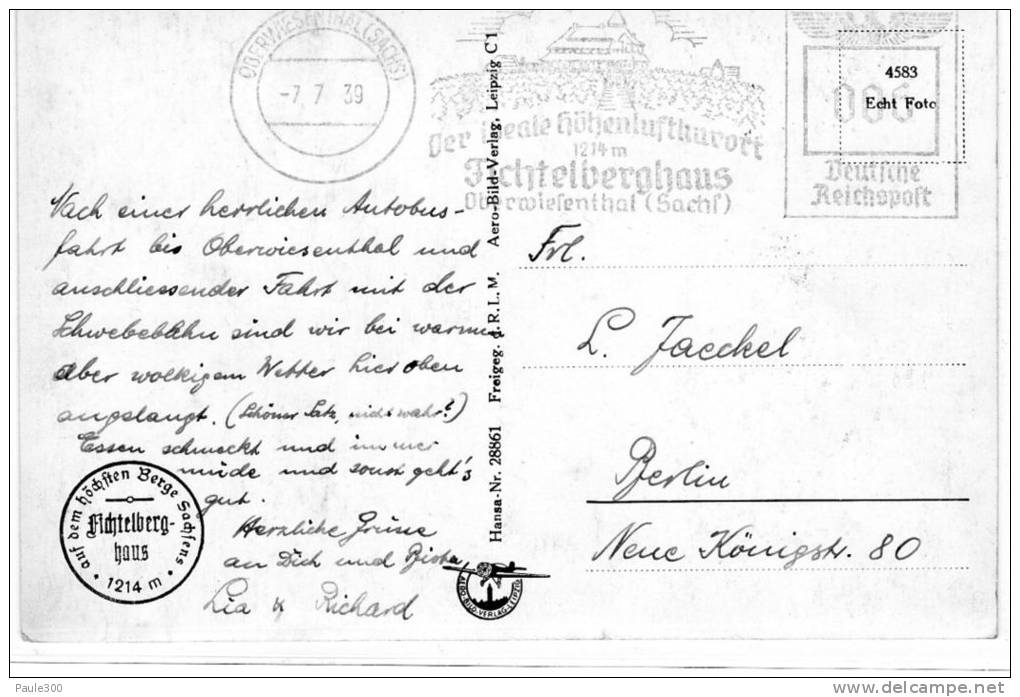 OBERWIESENTHAL (SACHS)
-7.7.39
Der ideale Höhenluftkurort
1214 m
Fichtelberghaus
Oberwiesenthal (Sachs)
4583
Echt Foto
006
Deutsche
Reichspost
Nach einer herrlichen Autobus-
fahrt bis Oberwiesenthal und
anschliessender Fahrt mit der
Schwebebahn sind wir bei warmem
aber wolkigem Wetter hier oben
angelangt. (Schöner Satz, nicht wahr?)
Essen schmeckt und immer
müde und sonst geht's
gut.
Herzliche Grüsse
an Dich und
Lia & Richard
auf dem höchsten Berge Sachsens
Fichtelberg-
haus
1214 m
Hansa-Nr. 28861 Freigeg. d. R.L.M. Aero-Bild-Verlag, Leipzig C 1
AERO-BILD-VERLAG-LEIPZIG
Frl.
L. Jaeckel
Berlin
Neue Königstr. 80
Paule300
delcampe.net